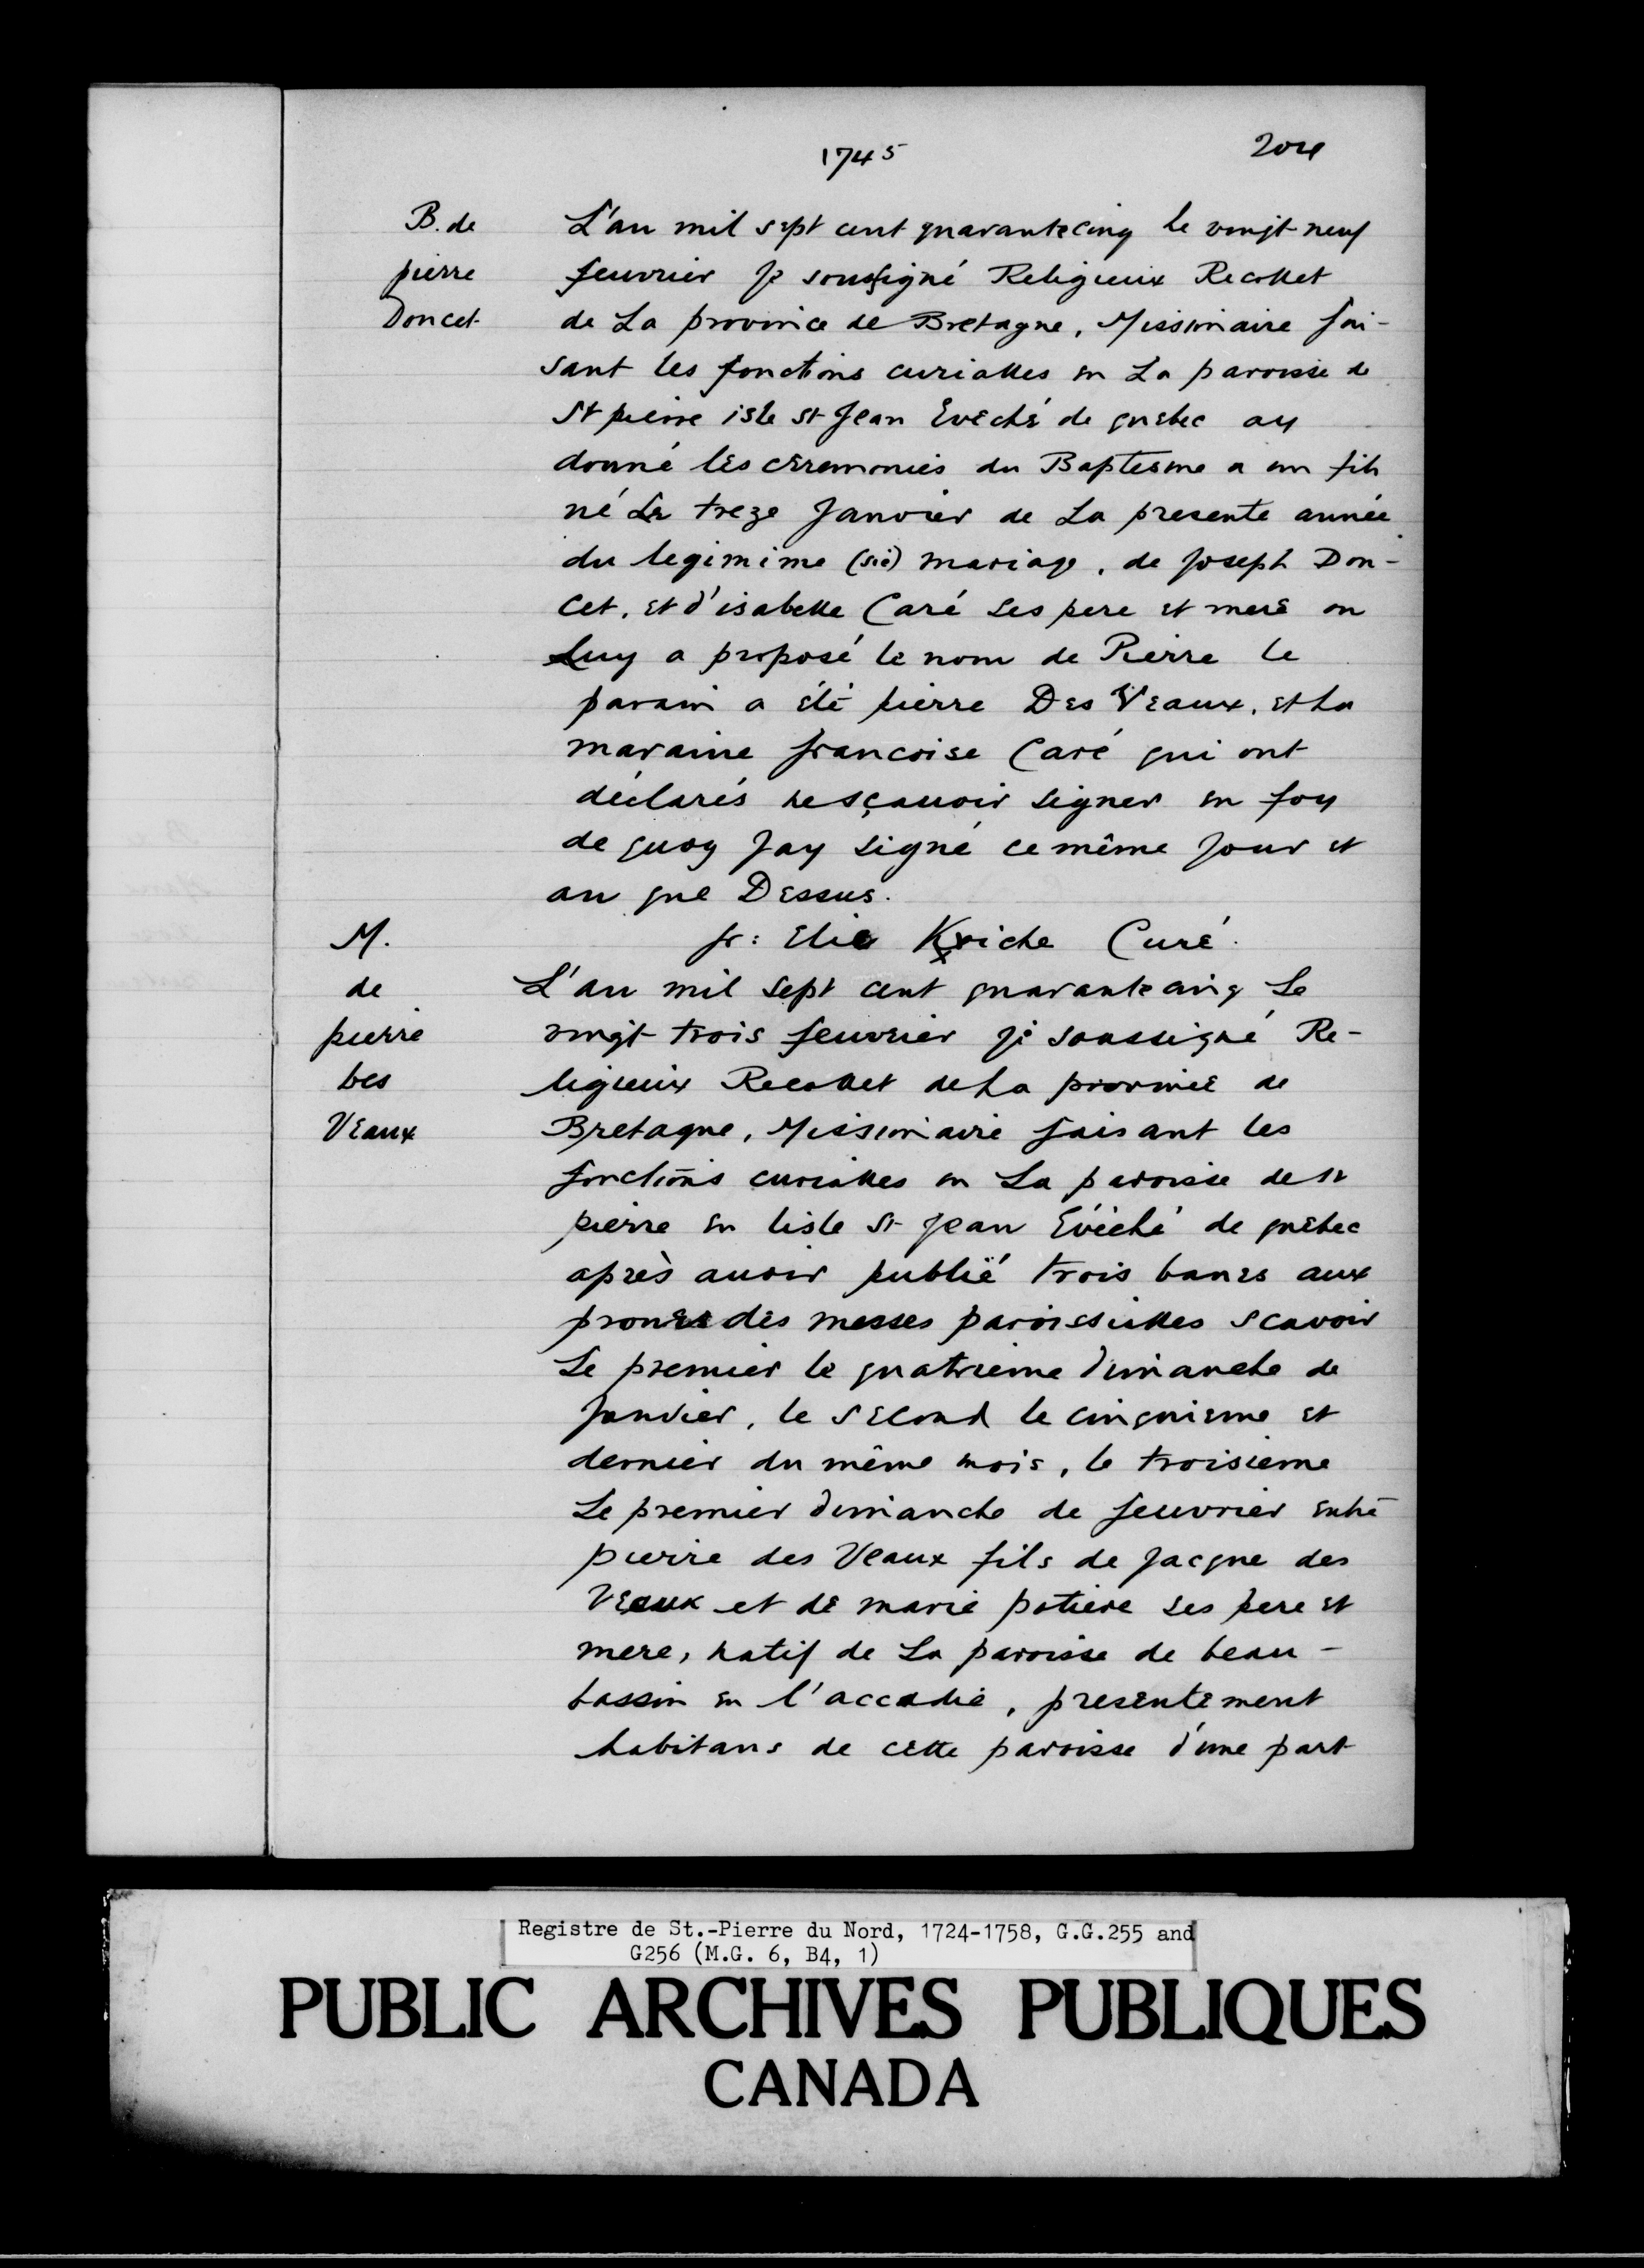 1745
204
B. de
pierre
Doucet
L'an mil sept cent quarantecinq le vingt-neuf
feuvrier Je soussigné Religieux Recollet
de La province de Bretagne, Missionaire fai-
sant les fonctions curialles en La paroisse de
St pierre isle st Jean Evêché de quebec ay
donné les ceremonies du Baptesme a un fils
né Le treze Janvier de La presente année
du legimime (sic) mariage, de Joseph Dou-
cet, et d'isabelle Caré ses pere et mere on
Luy a proposé le nom de Pierre le
parain a été pierre Des Veaux, et La
maraine francoise Caré qui ont
déclarés ne sçauoir signer en foy
de quoy Jay signé ce même Jour et
an que Dessus.
fr: Elie Kxriche Curé.
M.
de
pierre
des
Veaux
L'an mil sept cent quarantecinq Le
vingt trois feuvrier je soussigné Re-
ligieux Recollet de La province de
Bretagne, Missionaire faisant les
fonctions curialles en La paroisse de st
pierre en lisle St Jean Evêché de quebec
après auoir publié trois bancs aux
prones des messes paroissialles scavoir
Le premier le quatrieme dimanche de
Janvier, le second le cinquieme et
dernier du même mois, le troisieme
Le premier dimanche de feuvrier entre
pierre des Veaux fils de Jacque des
Veaux et de marie potiere ses pere et
mere, natif de La paroisse de beau-
bassin en l'accadie, presentement
habitans de cette paroisse d'une part
Registre de St.-Pierre du Nord, 1724-1758, G.G.255 and
G256 (M.G. 6, B4, 1)
PUBLIC ARCHIVES PUBLIQUES
CANADA